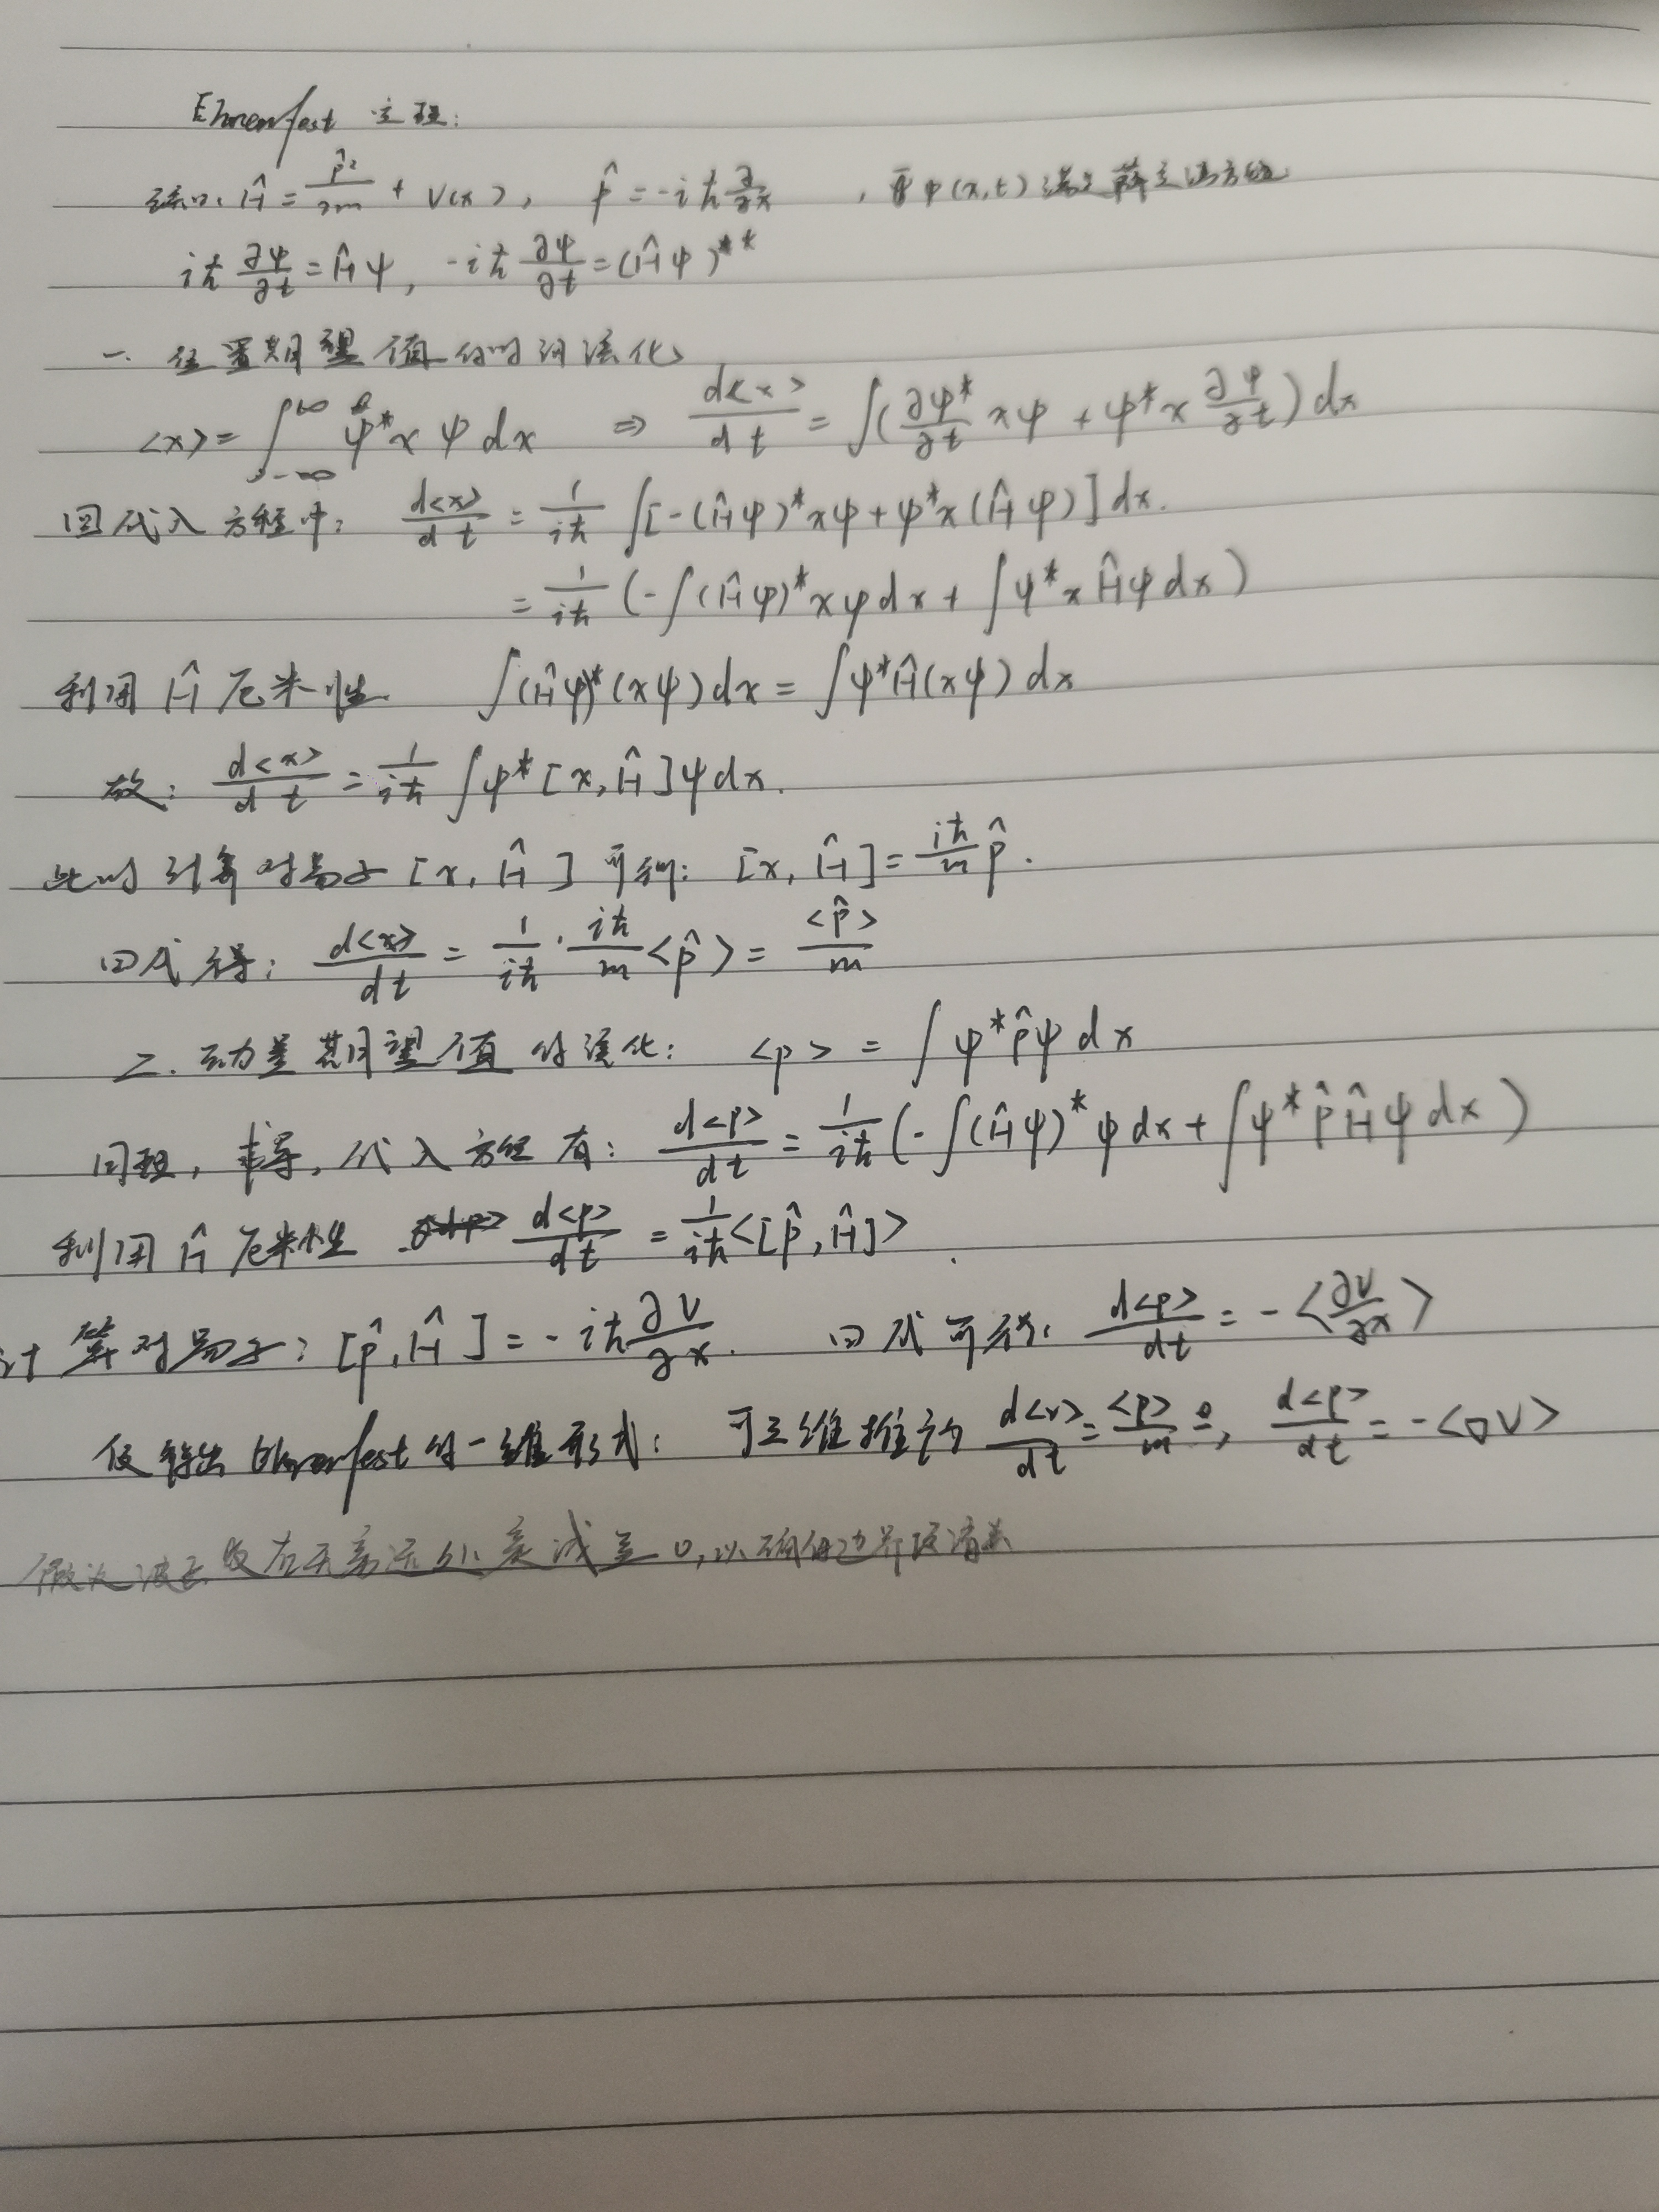 Ehrenfest 定理:
Ĥ = p̂²/2m + V(x), p̂ = -iħ ∂/∂x , 且ψ(x,t)满足薛定谔方程
iħ ∂ψ/∂t = Ĥψ, -iħ ∂ψ/∂t = (Ĥψ)**
一. 位置期望值的时间演化
<x> = ∫_{-∞}^{+∞} ψ* x ψ dx ⇒ d<x>/dt = ∫(∂ψ*/∂t xψ + ψ* x ∂ψ/∂t) dx
回代入方程中: d<x>/dt = 1/iħ ∫[-(Ĥψ)* xψ + ψ* x(Ĥψ)] dx.
= 1/iħ (-∫(Ĥψ)* xψ dx + ∫ψ* x Ĥψ dx)
利用 Ĥ 厄米性 ∫(Ĥψ)*(xψ) dx = ∫ψ*Ĥ(xψ) dx
故: d<x>/dt = 1/iħ ∫ψ* [x, Ĥ] ψ dx.
此时计算对易子 [x, Ĥ] 可得: [x, Ĥ] = iħ/m p̂.
回代得: d<x>/dt = 1/iħ · iħ/m <p̂> = <p̂>/m
二. 动量期望值的演化: <p> = ∫ψ* p̂ψ dx
同理, 求导, 代入方程有: d<p>/dt = 1/iħ (-∫(Ĥψ)* ψ dx + ∫ψ* p̂ Ĥ ψ dx)
利用 Ĥ 厄米性 d<p>/dt = 1/iħ <[p̂, Ĥ]>
计算对易子: [p̂, Ĥ] = -iħ ∂V/∂x. 回代可得: d<p>/dt = -<∂V/∂x>
仅得出 Ehrenfest 的一维形式: 可三维推广为 d<r>/dt = <p>/m, d<p>/dt = -<∇V>
假设波函数在无穷远处衰减至0, 以确保边界项消失